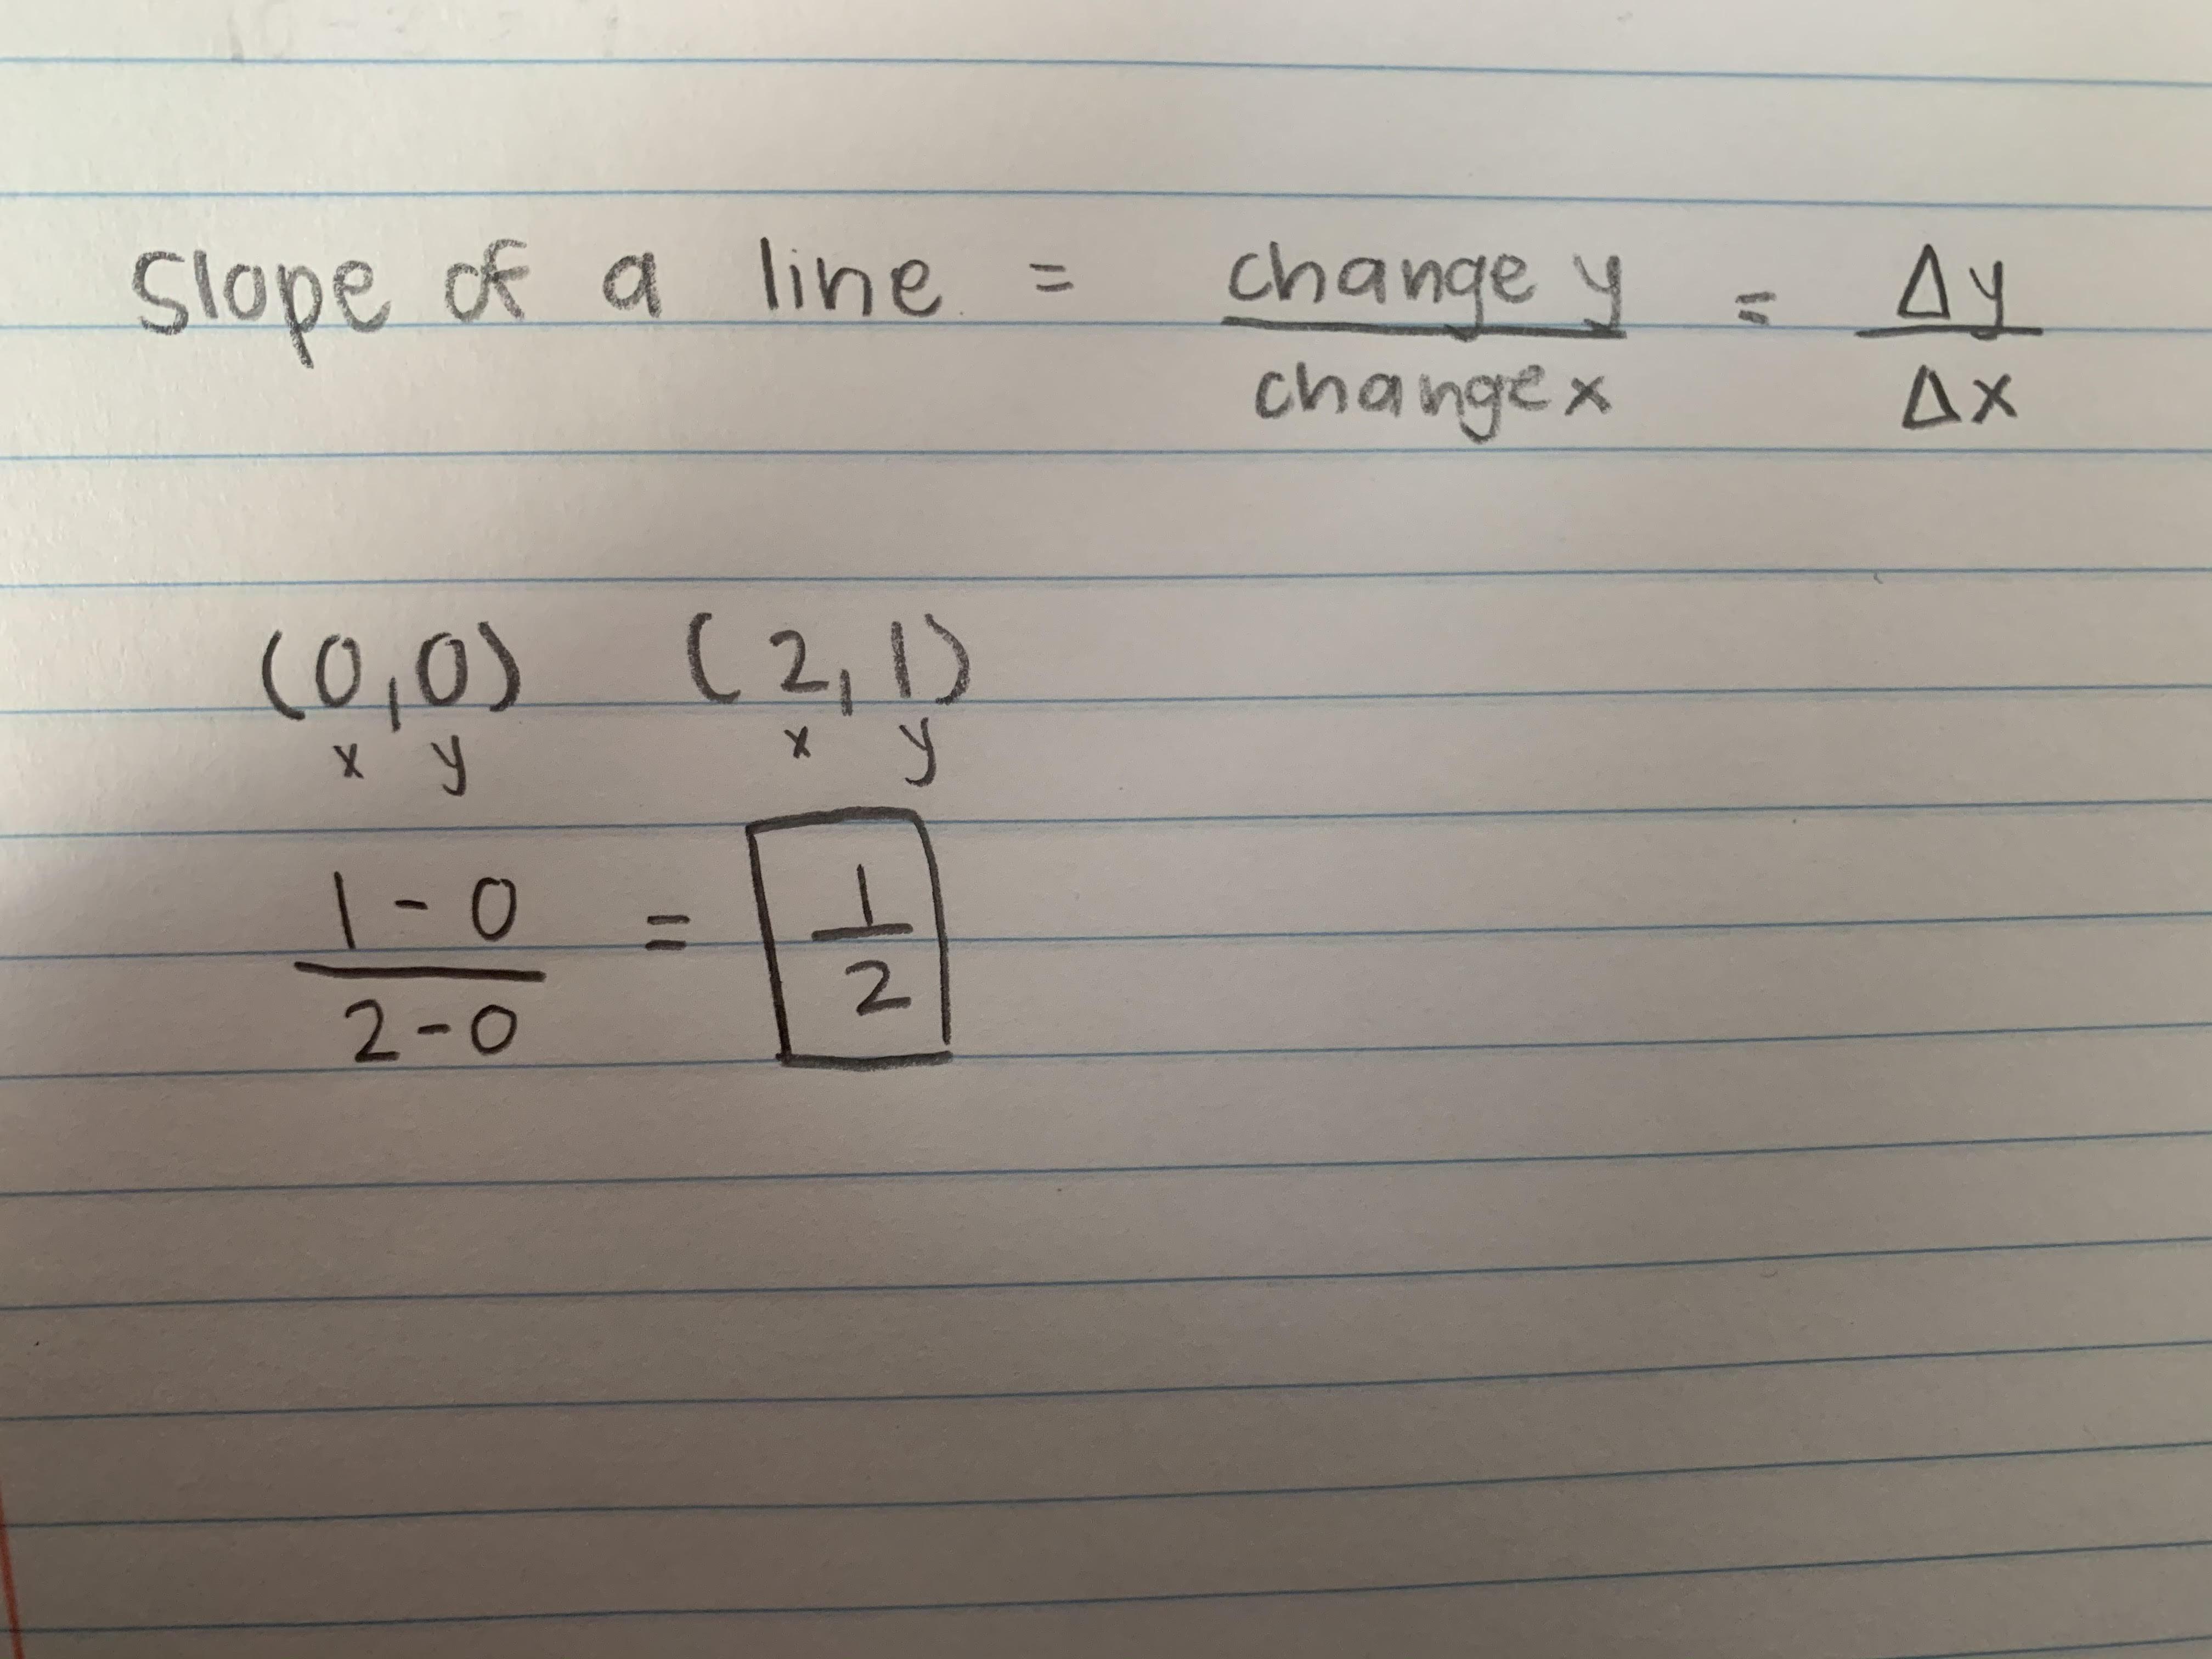 Slope of a line = change y / change x = Δy / Δx
(0,0) (2,1)
x y x y
1-0 / 2-0 = 1 / 2